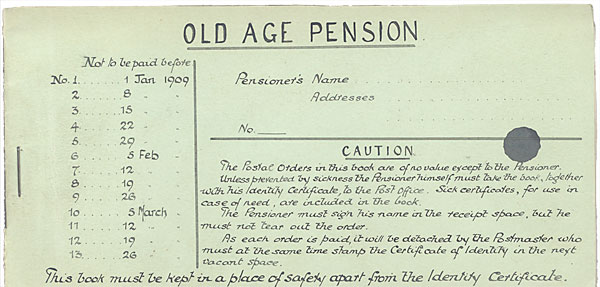 OLD AGE PENSION.
Not to be paid before
No. 1 ...... 1 Jan 1909
2 ...... 8 " "
3 ...... 15 " "
4 ...... 22 " "
5 ...... 29 " "
6 ...... 5 Feb "
7 ...... 12 " "
8 ...... 19 " "
9 ...... 26 " "
10 ...... 5 March "
11 ...... 12 " "
12 ...... 19 " "
13 ...... 26 " "
Pensioner's Name
Addresses
No. ____
CAUTION.
The Postal Orders in this book are of no value except to the Pensioner.
Unless prevented by sickness the Pensioner himself must take the book, together
with his Identity Certificate, to the Post Office. Sick certificates, for use in
case of need, are included in the book.
The Pensioner must sign his name in the receipt space, but he
must not tear out the order.
As each order is paid, it will be detached by the Postmaster who
must at the same time stamp the Certificate of Identity in the next
vacant space.
This book must be kept in a place of safety apart from the Identity Certificate.